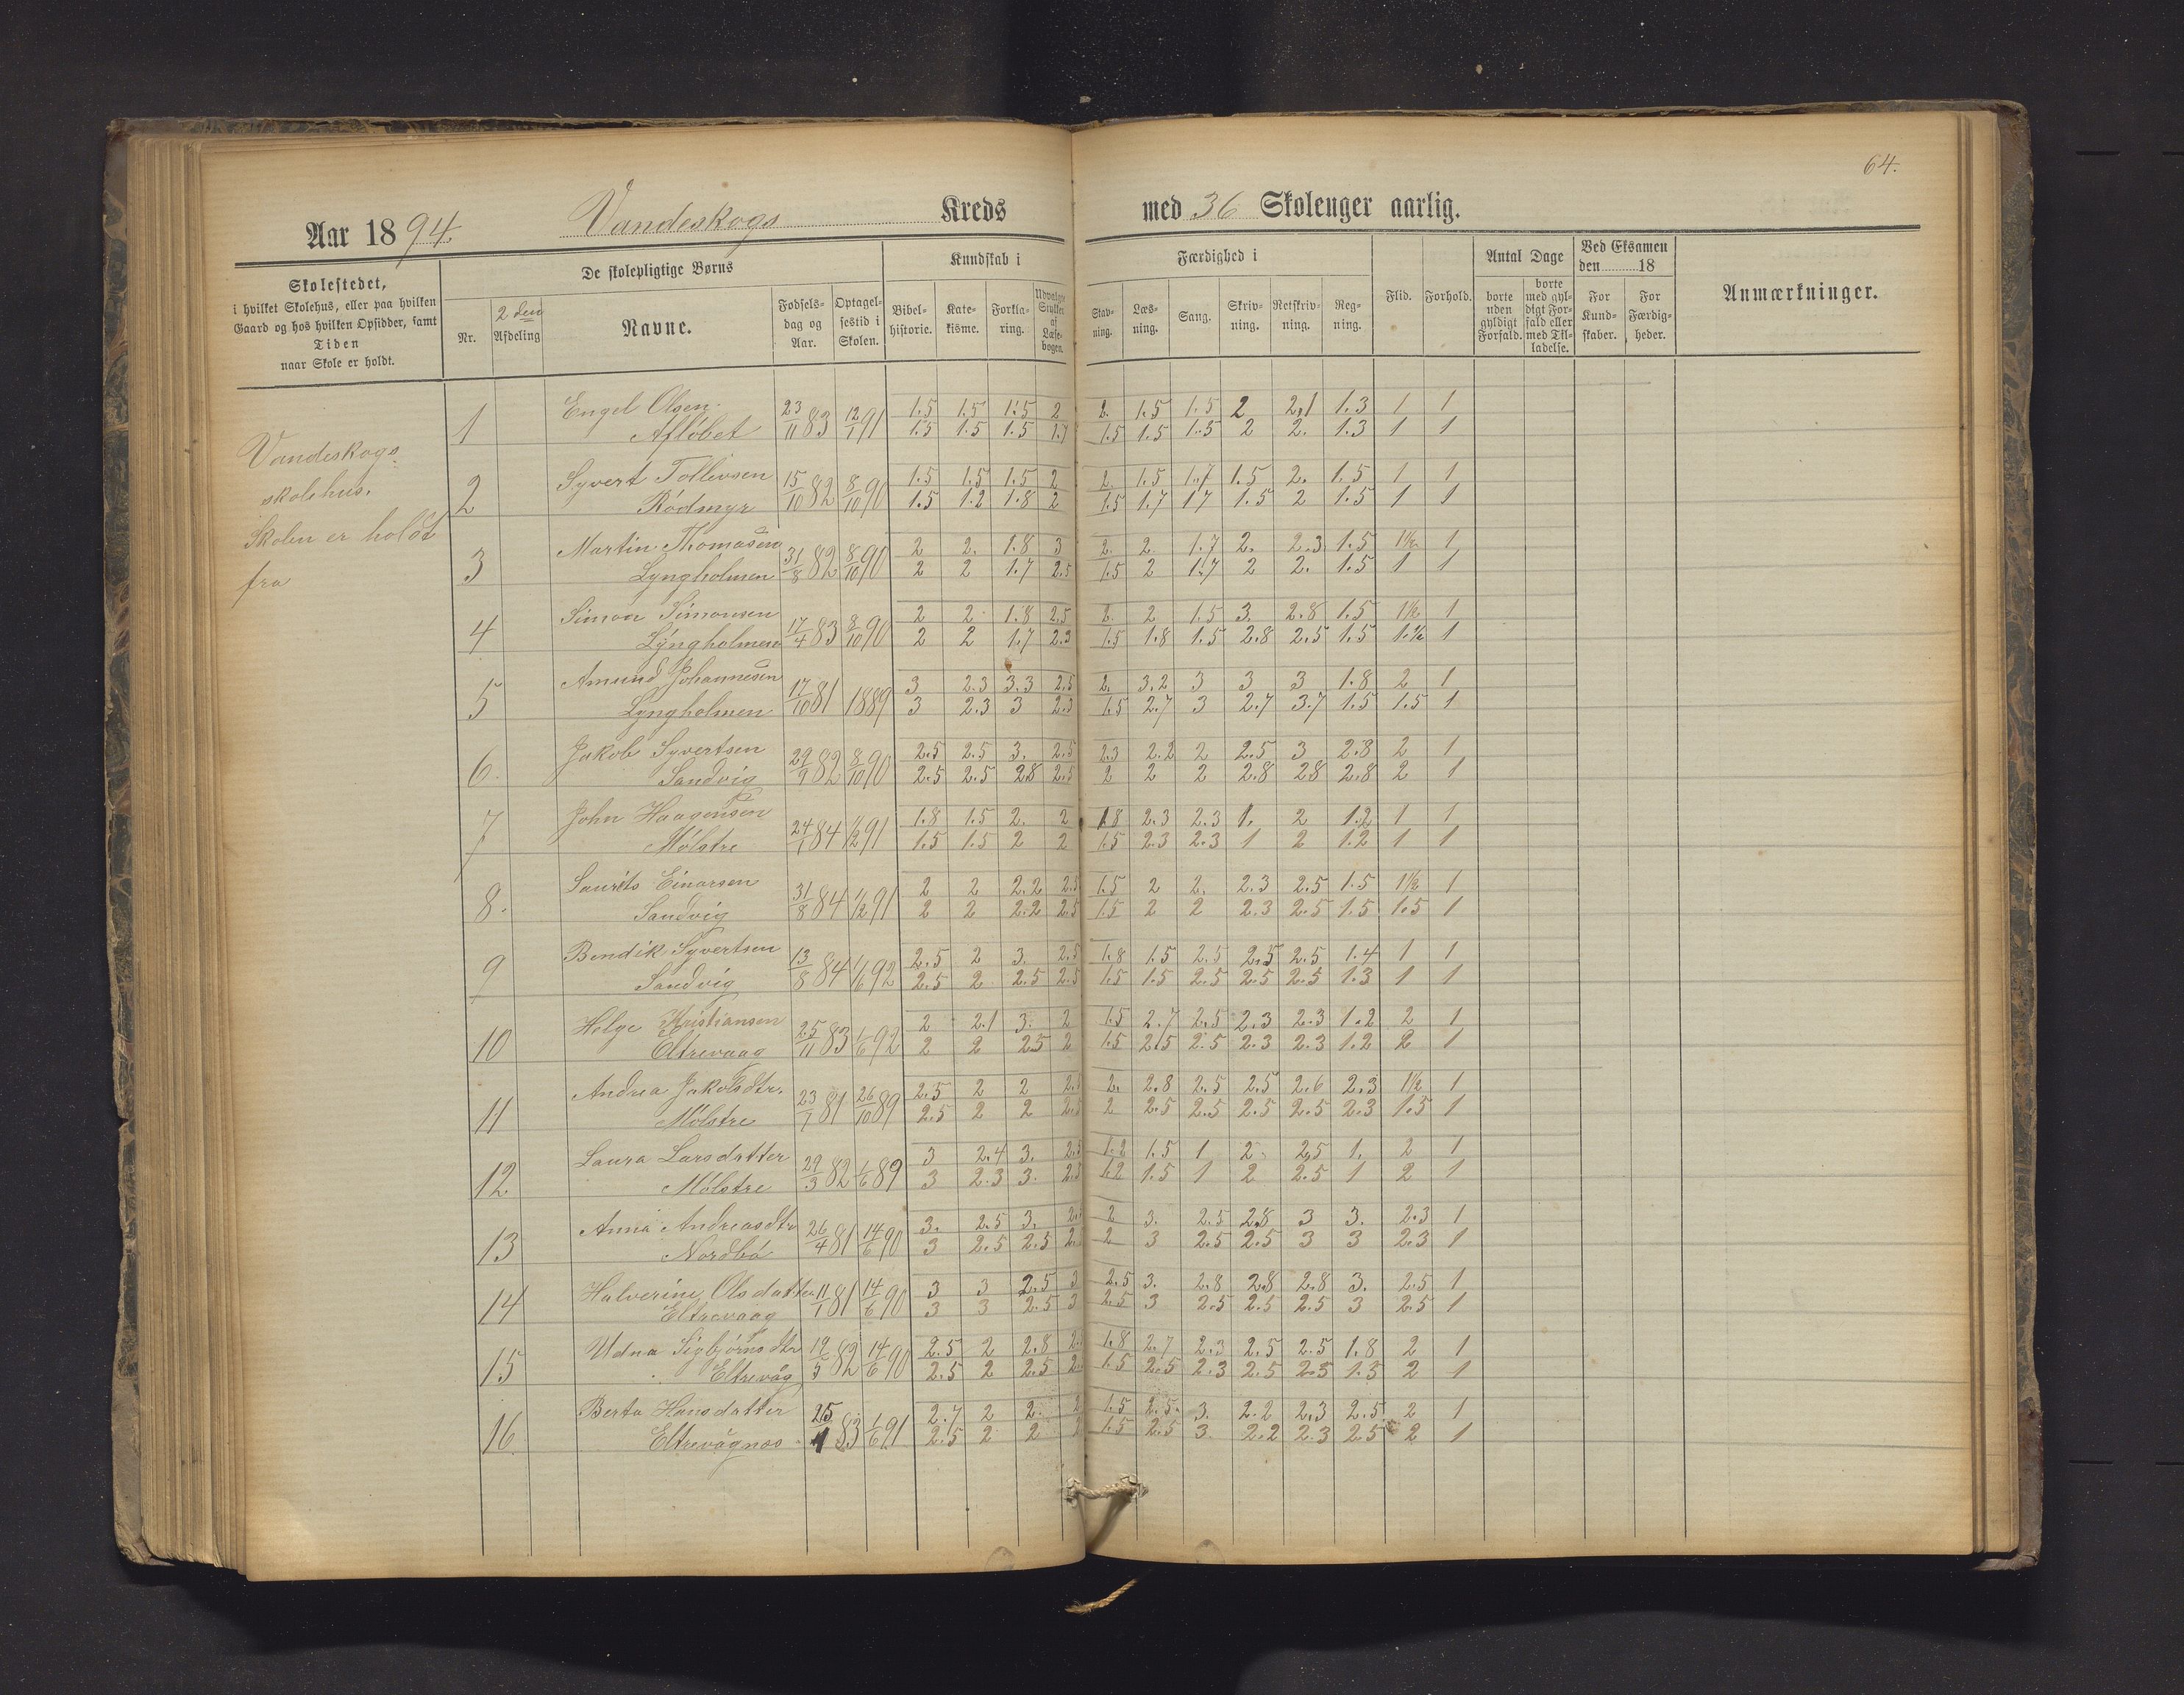 64.
Aar 1894. Vandeskogs Kreds med 36 Skoleuger aarlig.
Skolestedet, i hvilket Skolehus, eller paa hvilken Gaard og hos hvilken Opsidder, samt Tiden naar Skole er holdt.
De skolepligtige Børns
Nr. 2den Afdeling Navne. Fødselsdag og Aar. Optagelsestid i Skolen.
Kundskab i
Bibelhistorie. Katekisme. Forklaring. Udvalgte Stykker af Læsebogen.
Færdighed i
Stavning. Læsning. Sang. Skrivning. Retskrivning. Regning.
Flid. Forhold.
Antal Dage
borte uden gyldigt Forfald. borte med gyldigt Forfald eller med Tilladelse.
Ved Eksamen den 18
For Kundskaber. For Færdigheder.
Anmærkninger.
Vandeskogs
skolehus.
Skolen er holdt
fra
1 Engel Olsen 23/11 83 12/1 91 1.5 1.5 1.5 2 2. 1.5 1.5 2 2,1 1.3 1 1
Afløbet 1.5 1.5 1.5 1.7 1.5 1.5 1.5 2 2. 1.3 1 1
2 Syvert Tollevsen 15/10 82 8/10 90 1.5 1.5 1.5 2 2. 1.5 1.7 1.5 2. 1.5 1 1
Rödmyr 1.5 1.2 1.8 2 1.5 1.7 17 1.5 2 1.5 1 1
3 Martin Thomasen 31/8 82 8/10 90 2 2. 1.8 3 2. 2. 1.7 2. 2.3 1.5 1½ 1
Lyngholmen 2 2 1.7 2.5 1.5 2 1.7 2 2. 1.5 1 1
4 Simon Simonsen 17/4 83 8/10 90 2 2 1.8 2.5 2. 2 1.5 3. 2.8 1.5 1½ 1
Lyngholmen 2 2 1.7 2.3 1.5 1.8 1.5 2.8 2.5 1.5 1.½ 1
5 Amund Johannesen 17/10 81 1889 3 2.3 3.3 2.5 2. 3.2 3 3 3 1.8 2 1
Lyngholmen 3 2.3 3 2.3 1.5 2.7 3 2.7 3.7 1.5 1.5 1
6. Jakob Syvertsen 29/9 82 8/10 90 2.5 2.5 3. 2.5 2.3 2.2 2 2.5 3 2.8 2 1
Sandvig 2.5 2.5 2.8 2.5 2 2 2 2.8 28 2.8 2 1
7 John Haagensen 24/1 84 1/2 91 1.8 1.5 2. 2 1.8 2.3 2.3 1. 2 1.2 1 1
Mölstre 1.5 1.5 2 2 1.5 2.3 2.3 1 2 1.2 1 1
8. Laurits Einarsen 31/8 84 1/2 91 2 2 2.2 2.5 1.5 2 2. 2.3 2.5 1.5 1½ 1
Sandvig 2 2 2.2 2.5 1.5 2 2 2.3 2.5 1.5 1.5 1
9 Bendik Syvertsen 13/8 84 1/6 92 2.5 2 3. 2.5 1.8 1.5 2.5 2.5 2.5 1.4 1 1
Sandvig 2.5 2 2.5 2.5 1.5 1.5 2.5 2.5 2.5 1.3 1 1
10 Helge Kristiansen 25/11 83 1/6 92 2 2.1 3. 2 1.5 2.7 2.5 2.3 2.3 1.2 2 1
Eltrevaag 2 2 2.5 2 1.5 2.5 2.5 2.3 2.3 1.2 2 1
11 Andrea Jakobsdtr. 23/7 81 26/10 89 2.5 2 2 2.5 2. 2.8 2.5 2.5 2.6 2.3 1½ 1
Mölstre 2.5 2 2 2.5 2 2.5 2.5 2.5 2.5 2.3 1.5 1
12 Laura Larsdatter 29/3 82 1/6 89 3 2.4 3. 2.5 1.2 1.5 1 2. 2.5 1. 2 1
Mölstre 3 2.3 3. 2.5 1.2 1.5 1 2 2.5 1 2 1
13 Anna Andreasdtr 26/4 81 14/6 90 3. 2.5 3. 2 3. 2.5 2.8 3 3. 2.3 1
Nordbö 3 2.5 2.5 2 3 2.5 2.5 3 3 2.3 1
14 Halverine Olsdatter 11/1 81 14/6 90 3 3 2.5 3 2.5 3. 2.8 2.8 2.8 3. 2.5 1
Eltrevaag 3 3 2.5 3 2.5 3 2.5 2.5 2.5 3 2.5 1
15 Udna Sigbjörnsdtr 19/5 82 14/6 90 2.5 2 2.8 1.8 2.7 2.3 2.5 2.5 1.8 2 1
Eltrevåg 2.5 2 2.5 1.5 2.5 2.3 2.5 2.5 1.5 2 1
16 Berta Hansdatter 25/1 83 1/6 91 2.7 2 2. 2 1.5 2.5. 3. 2.2 2.3 2.5 2 1
Eltrevågnes 2.5 2 2 2 1.5 2.5 3. 2.2 2.3 2.5 2 1